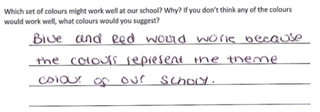 Which set of colours might work well at our school? Why? If you don't think any of the colours
would work well, what colours would you suggest?
Blue and Red would work because
the colours represent the theme
colour of our school.